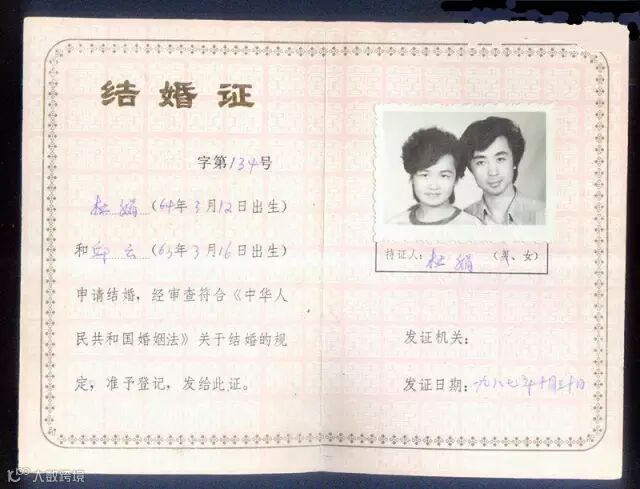 结婚证
字第134号
杜娟（64年3月12日出生）
和邱云（63年3月16日出生）
申请结婚，经审查符合《中华人
民共和国婚姻法》关于结婚的规
定，准予登记，发给此证。
持证人：杜娟（男、女）
发证机关：
发证日期：一九八七年十月三十日
大数跨境